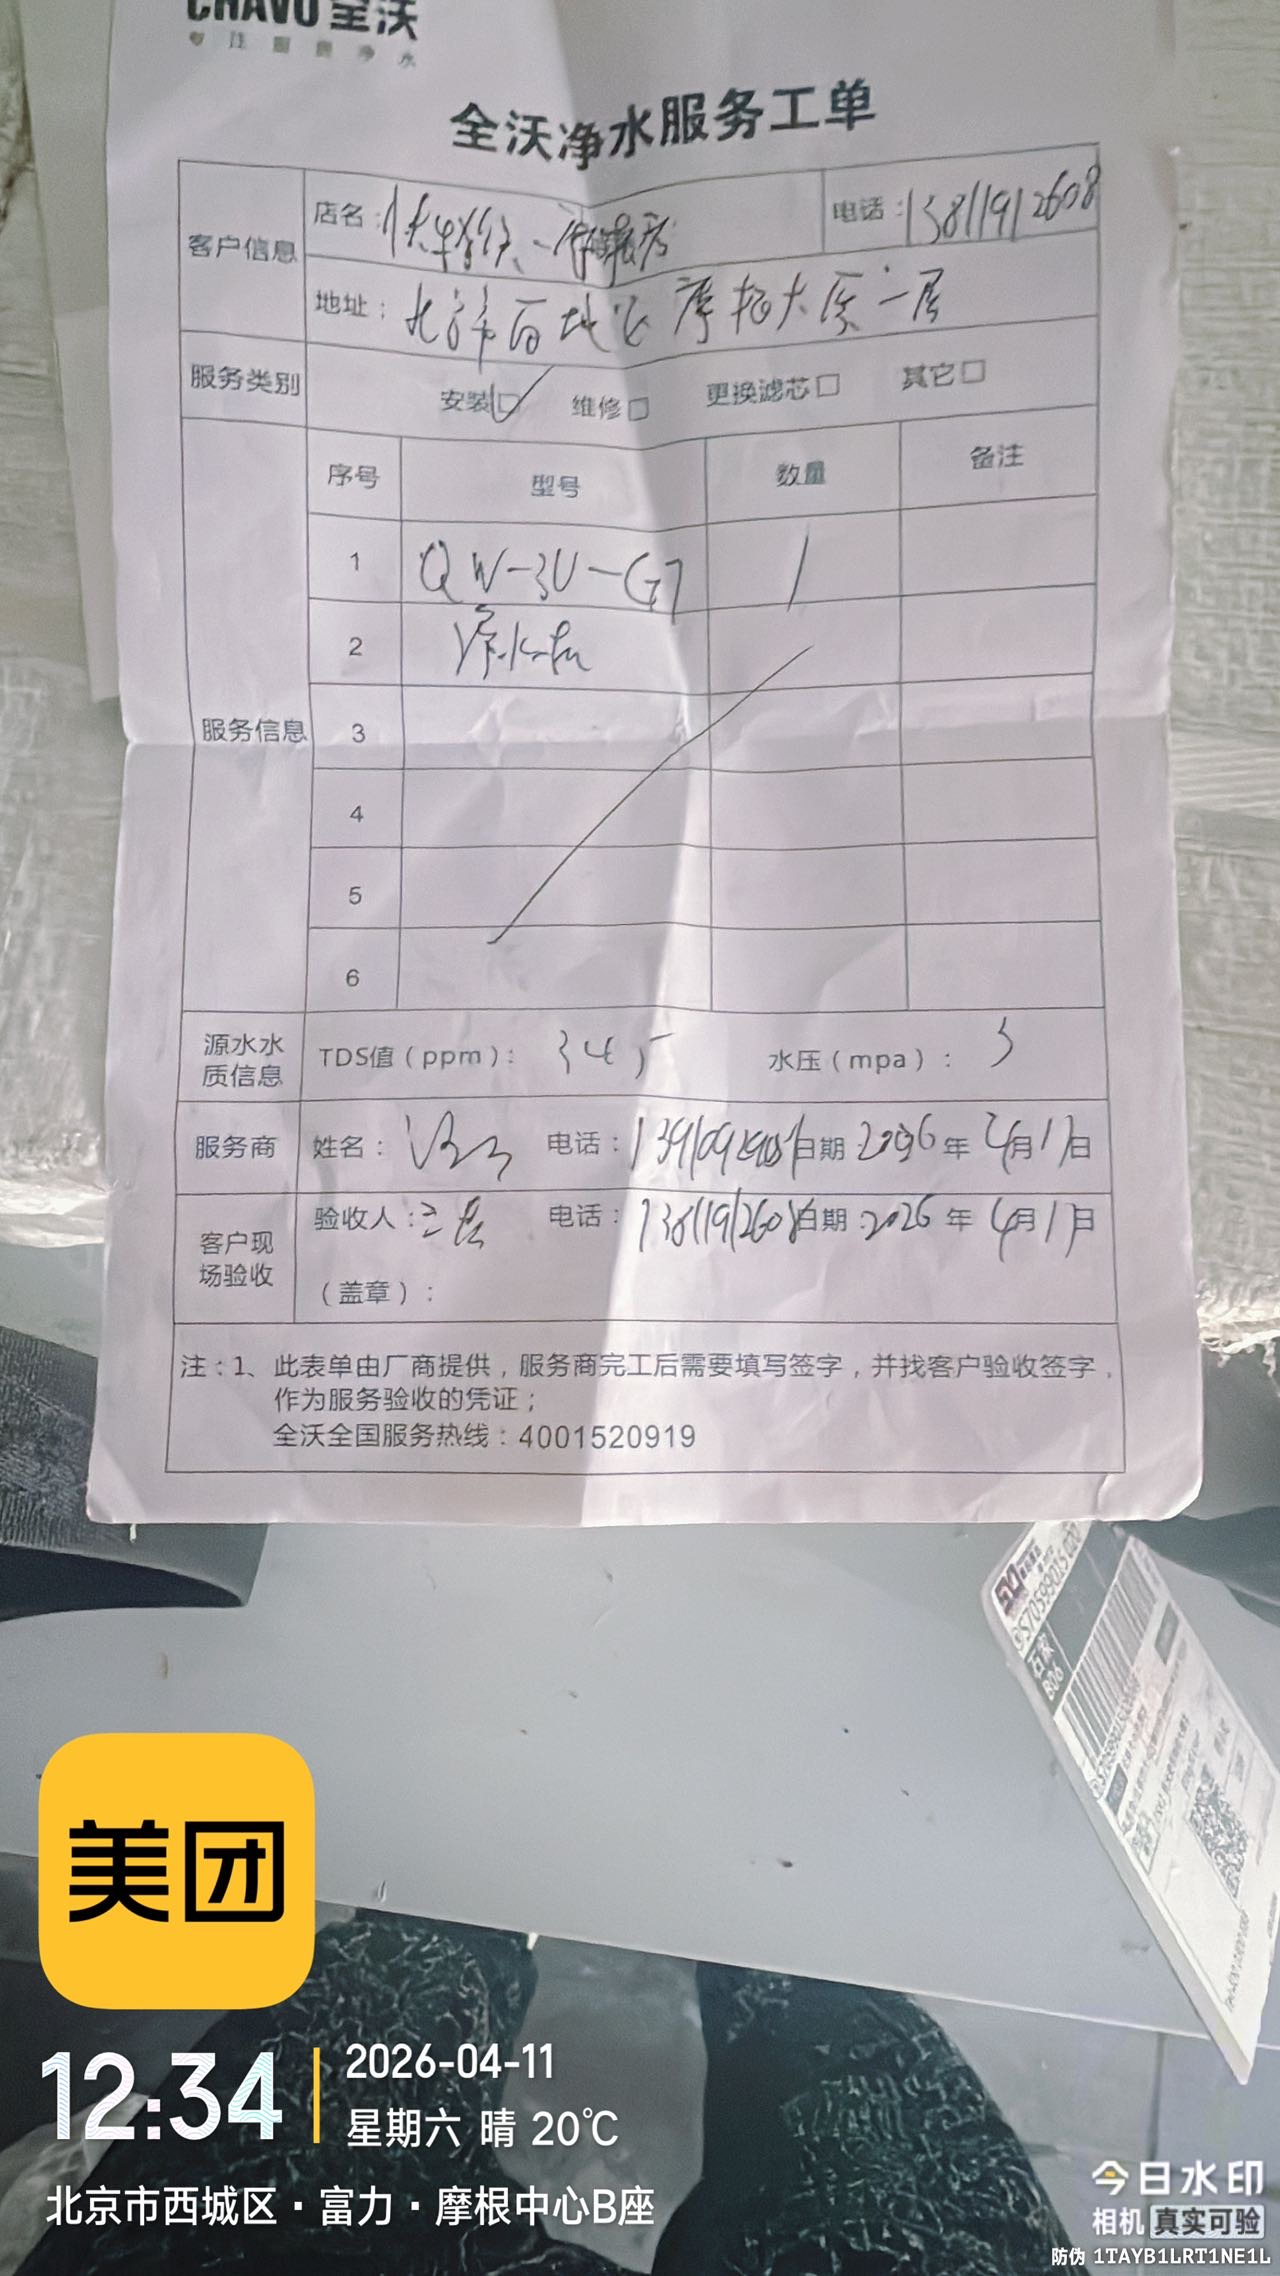 CHAVO 全沃
专注商用净水
全沃净水服务工单
客户信息
店名:
电话:13811912608
地址:
服务类别
安装□ 维修□ 更换滤芯□ 其它□
服务信息
序号 型号 数量 备注
1 QW-3U-G7 1
2 净水机
3
4
5
6
源水水质信息
TDS值(ppm): 345 水压(mpa): 3
服务商 姓名: 电话: 日期 年 4月11日
客户现场验收
验收人: 电话:13811912608 日期:2026年 4月11日
(盖章):
注:1、此表单由厂商提供,服务商完工后需要填写签字,并找客户验收签字,
作为服务验收的凭证;
全沃全国服务热线:4001520919
美团
12:34
2026-04-11
星期六 晴 20℃
北京市西城区·富力·摩根中心B座
今日水印
相机 真实可验
防伪 1TAYB1LRT1NE1L